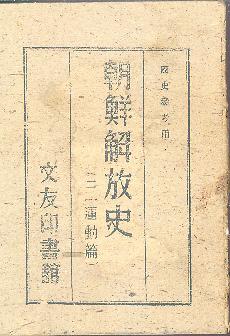 國史參考用
朝鮮解放史
三一運動篇
文友印書館